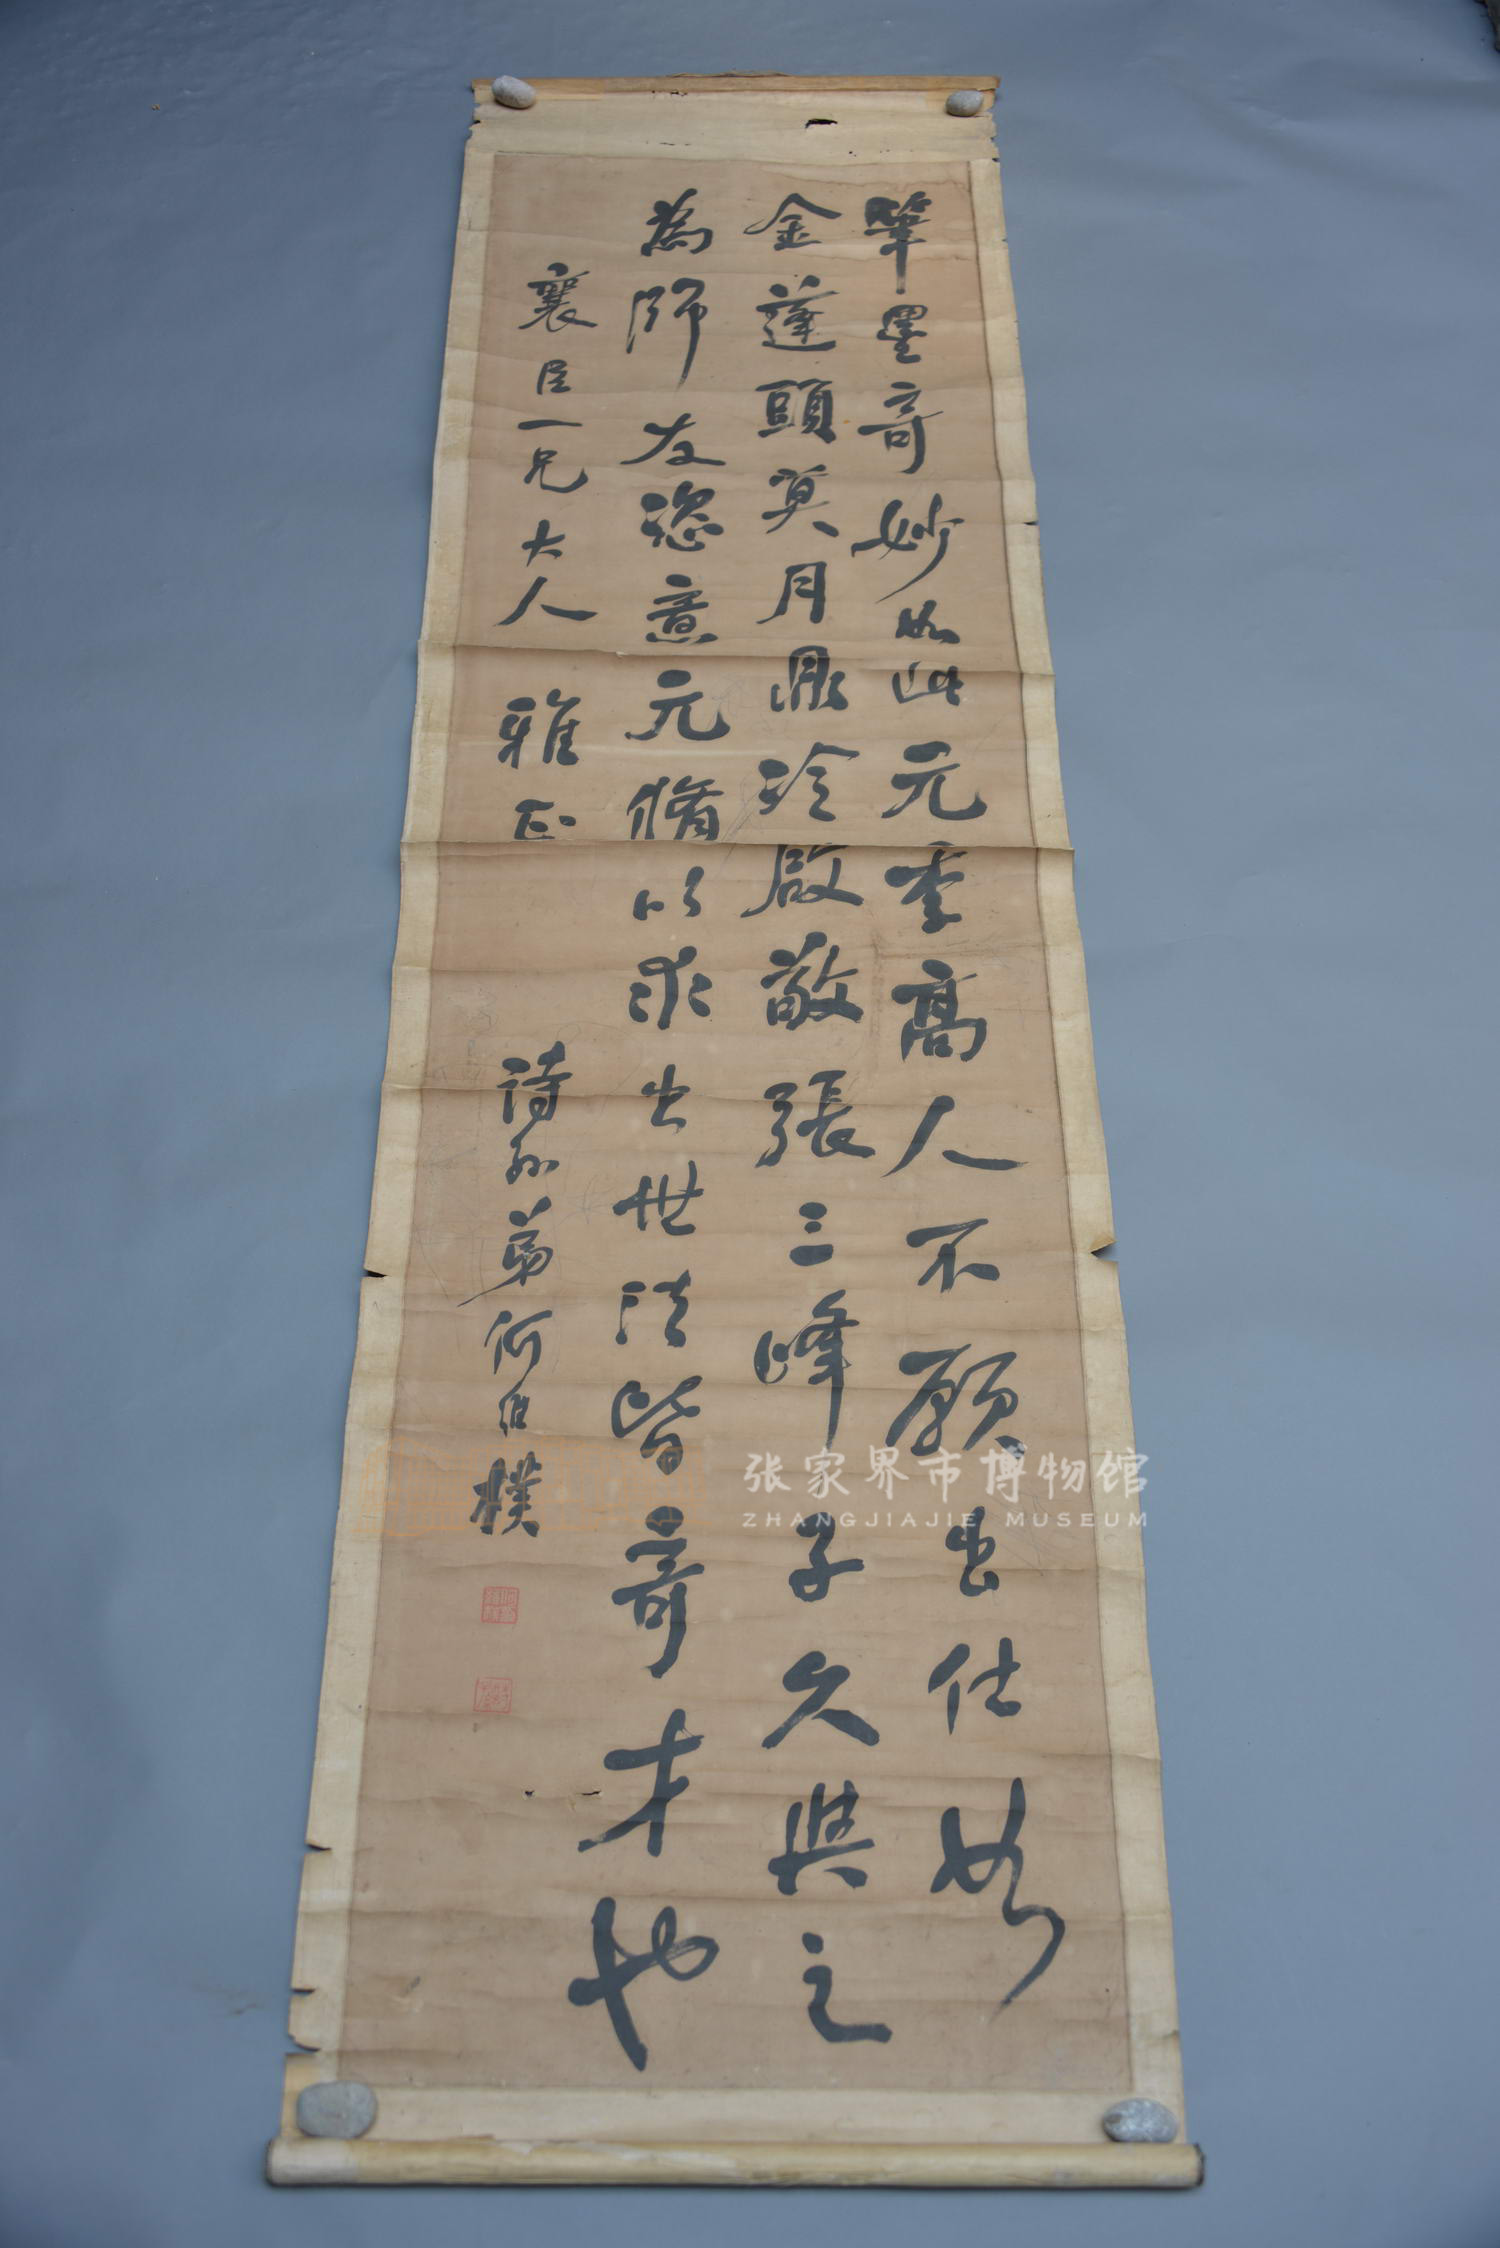 筆墨奇妙如此元季高人不願出仕如
金蓬頭莫月鼎冷啟敬張三峰子久與之
為師友恣意元脩以求出世法皆奇才也
襄臣一兄大人 雅正
詩孫弟何維樸
张家界市博物馆
ZHANGJIAJIE MUSEUM